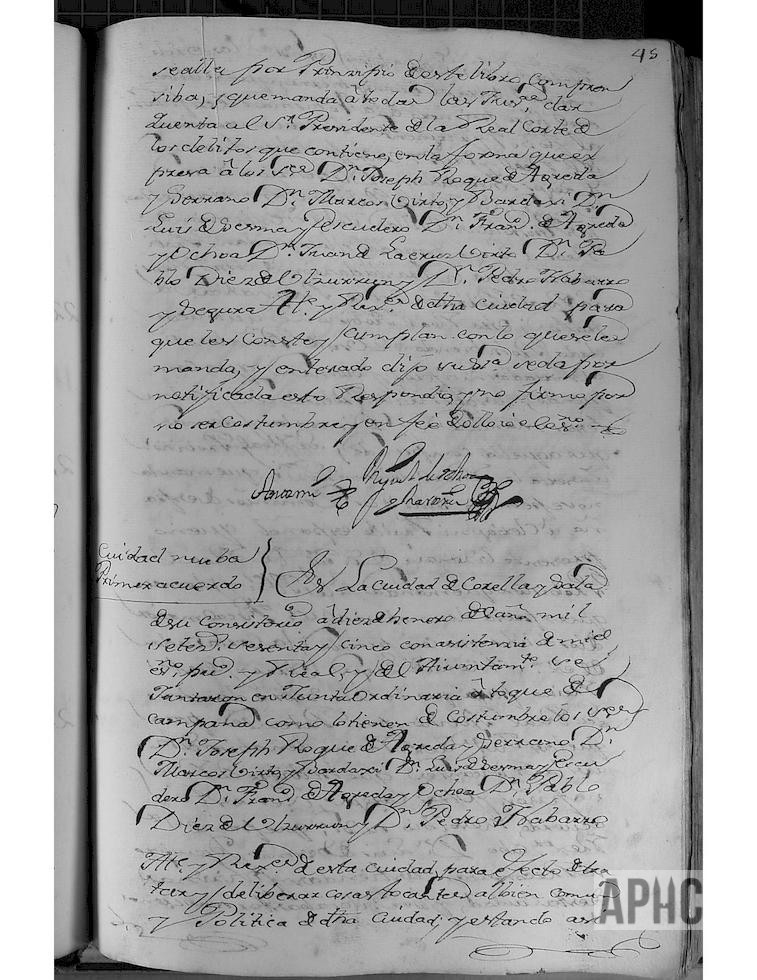 45
sealla por Prinzipio de este libro, compren
siba, y que manda a todas las Jusˢ. dar
Quenta al Sʳ. Presidente de la Real Corte de
los delitos que contiene, en la forma que ex
presa a los Sʳᵉˢ Dⁿ. Joseph Roque de Agreda
y Serrano Dⁿ. Marcos Virto y Bardaxi Dⁿ
Luis de Sesma y Escudero Dⁿ. Franᶜᵒ. de Agreda
y Ochoa Dⁿ. Juan de Lacruz Virto Dⁿ. Pa
blo Diez de Ulzurrun y Dⁿ. Pedro Nabarro
y Segura Alᵉ. y Rexˢ. de dha ciudad para
que les Conste y cumplan con lo que se les
manda, y enterado dijo su Sʳⁱᵃ se da por
notificada esto Respondio y no firmo por
no ser Costumbre y en feè de ello io el Esⁿᵒ
Ante mi
Miguel de
Ciudad nueba
Primer acuerdo
En La Ciudad de Corella y Sala
de su consistorio à diez de henero del año mil
setezˢ. sesenta y cinco con asistencia de mi el
esⁿᵒ. preˢ. y Real, y del Aiuntamᵗᵒ. se
Juntaron en Junta Ordinaria à toque de
campana como lo tienen de Costumbre los Sʳᵉˢ
Dⁿ. Joseph Roque de Agreda y Serrano, Dⁿ
Marcos Virto, y Bardaxi Dⁿ. Luis de Sesma y Escu
dero Dⁿ. Franᶜᵒ de Agreda y Ochoa Dⁿ. Pablo
Diez de Ulzurrun y Dⁿ. Pedro Nabarro
Alᵉ. y Rexˢ. de esta ciudad, para efecto de tra
tar y deliberar cosas tocantes al bien comun
y Politica de dha Ciudad; y estando assi
APHC